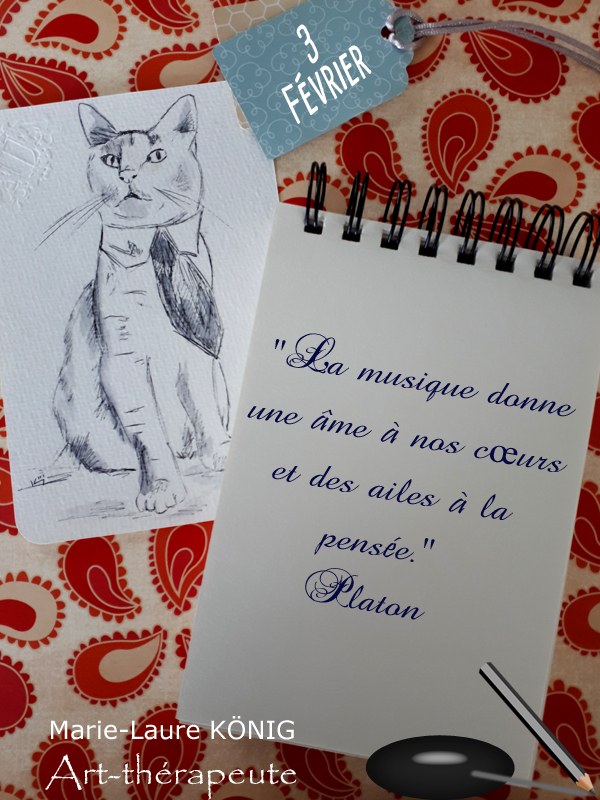 3
FÉVRIER
"La musique donne
une âme à nos cœurs
et des ailes à la
pensée."
Platon
Marie-Laure KÖNIG
Art-thérapeute